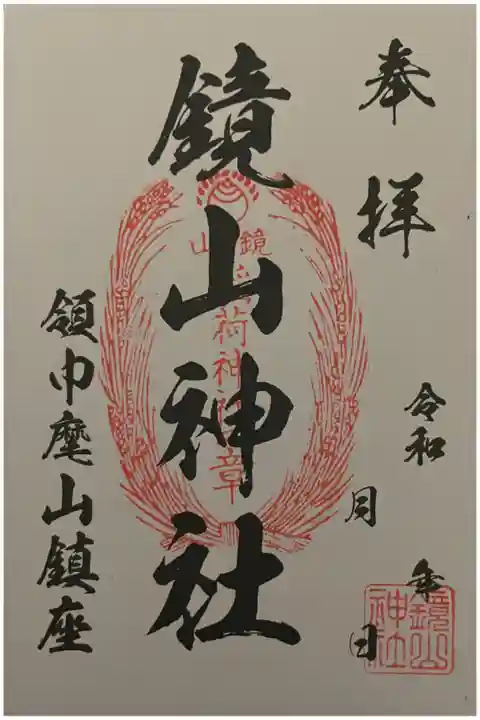 奉拝
令和 年
月 日
鏡山神社
領巾麾山鎮座
鏡山
稲荷神社章
鏡山神社